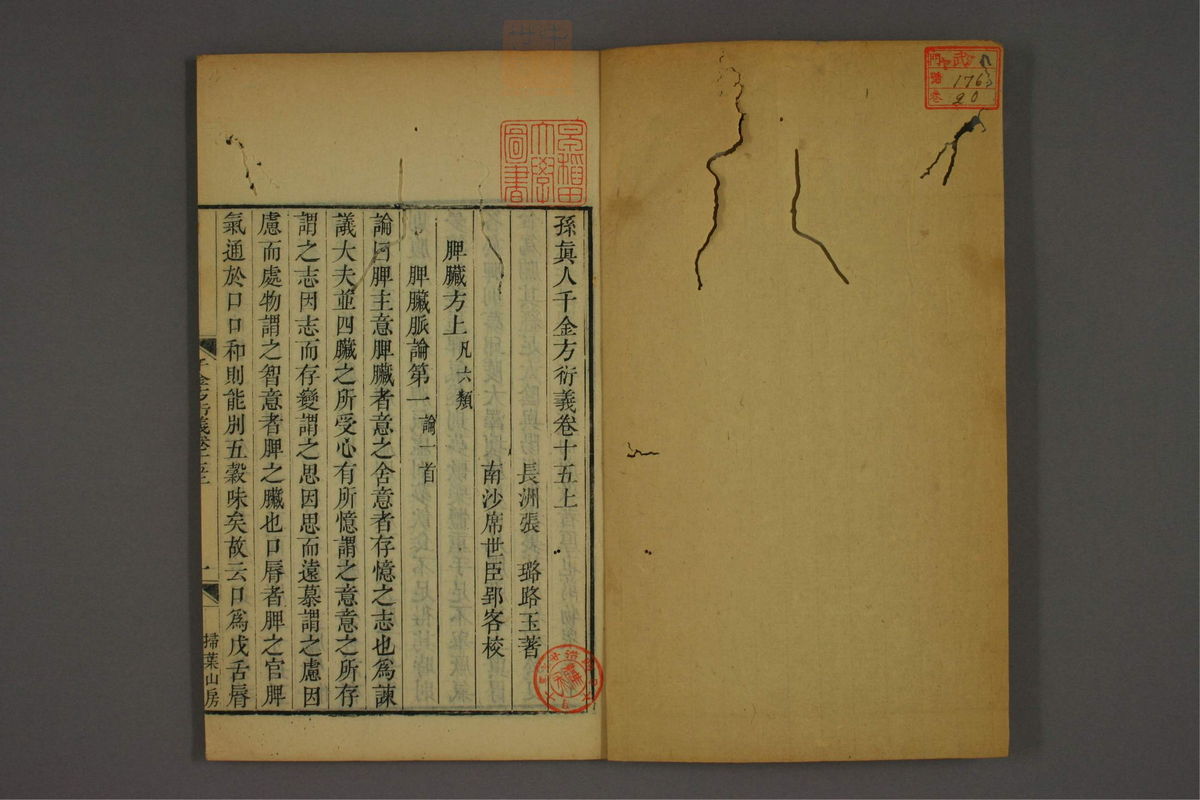 孫眞人千金方衍義卷十五上
長洲張　璐路玉著
南沙席世臣郢客校
脾臟方上 凡六類
脾臟脈論第一 論一首
論曰脾主意脾臟者意之舍意者存憶之志也爲諫
議大夫並四臟之所受心有所憶謂之意意之所存
謂之志因志而存變謂之思因思而遠慕謂之慮因
慮而處物謂之智意者脾之臟也口脣者脾之官脾
氣通於口口和則能別五穀味矣故云口爲戊舌脣
千金方衍義卷十五上
一
掃葉山房
早稻田大學圖書
門 武
號 1763
卷 20